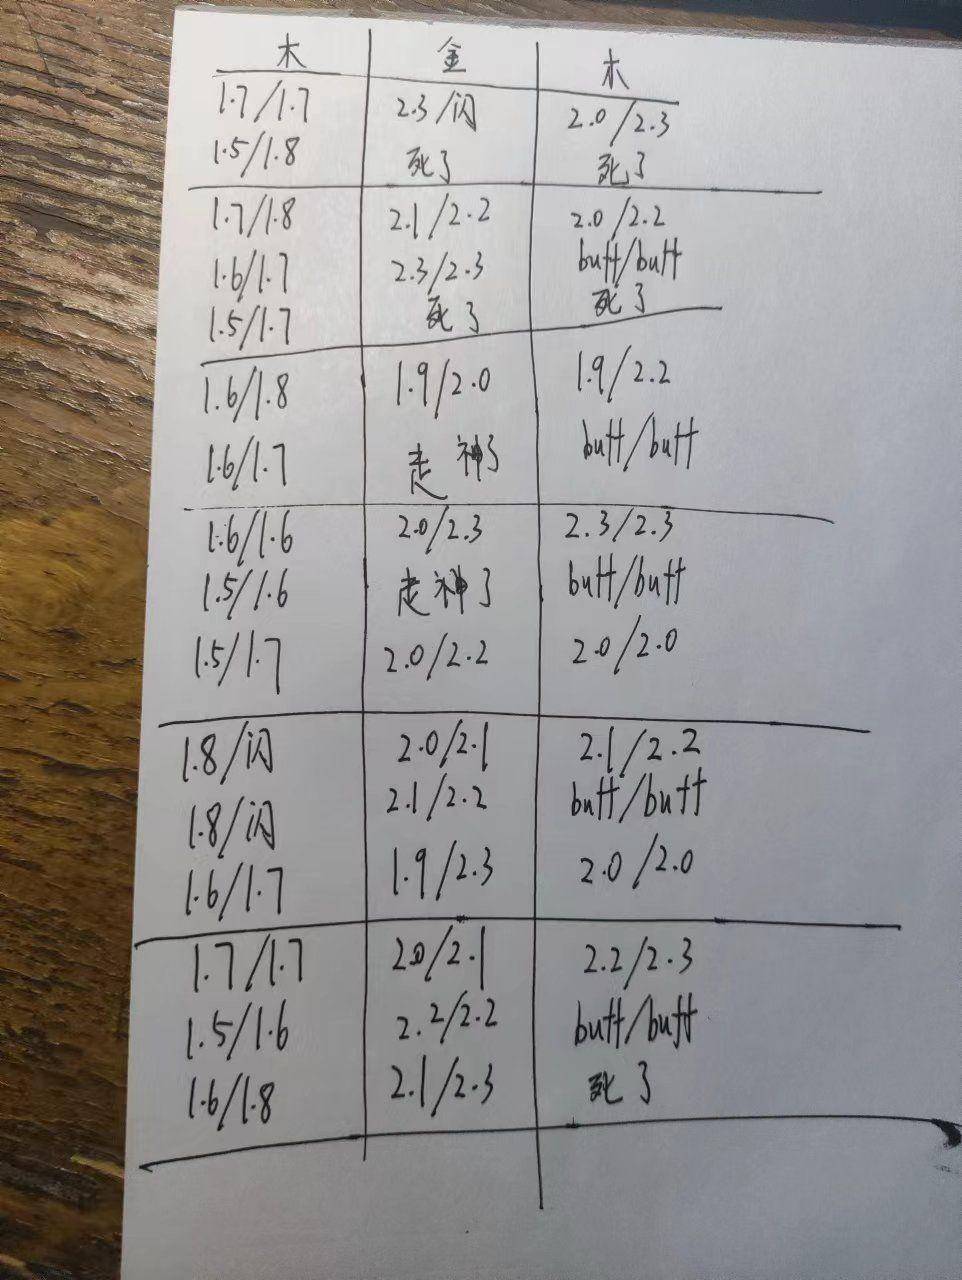 木 金 木
1.7/1.7 2.3/闪 2.0/2.3
1.5/1.8 死了 死了
1.7/1.8 2.1/2.2 2.0/2.2
1.6/1.7 2.3/2.3 butt/butt
1.5/1.7 死了 死了
1.6/1.8 1.9/2.0 1.9/2.2
1.6/1.7 走神了 butt/butt
1.6/1.6 2.0/2.3 2.3/2.3
1.5/1.6 走神了 butt/butt
1.5/1.7 2.0/2.2 2.0/2.0
1.8/闪 2.0/2.1 2.1/2.2
1.8/闪 2.1/2.2 butt/butt
1.6/1.7 1.9/2.3 2.0/2.0
1.7/1.7 2.0/2.1 2.2/2.3
1.5/1.6 2.2/2.2 butt/butt
1.6/1.8 2.1/2.3 死了